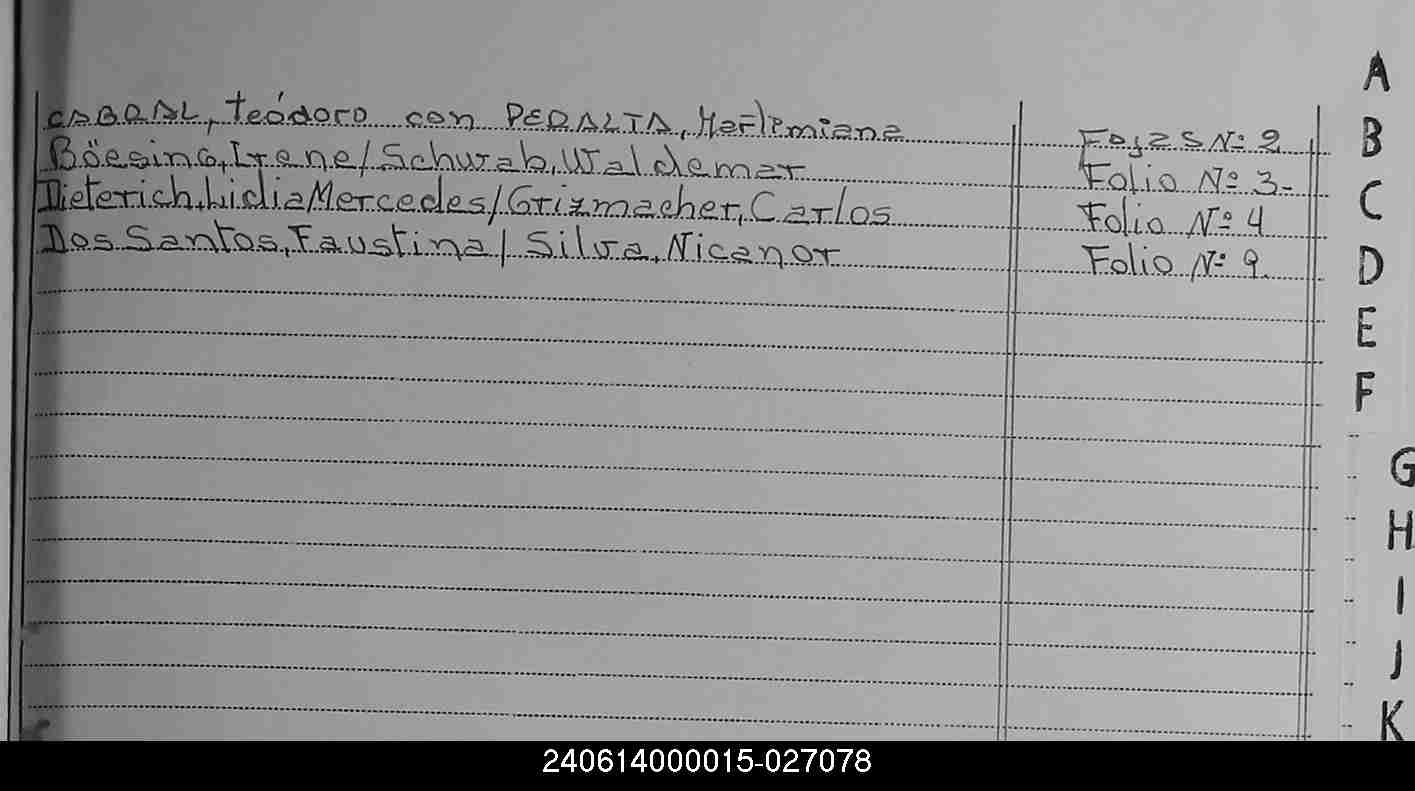 CABRAL, teódoro con PERALTA, Herlemiana Fojas Nº 2
Böesing, Irene / Schwab, Waldemar Folio Nº 3-
Dieterich, Lidia Mercedes / Grizmacher, Carlos Folio Nº 4
Dos Santos, Faustina / Silva, Nicanor Folio Nº 9
A
B
C
D
E
F
G
H
I
J
K
240614000015-027078